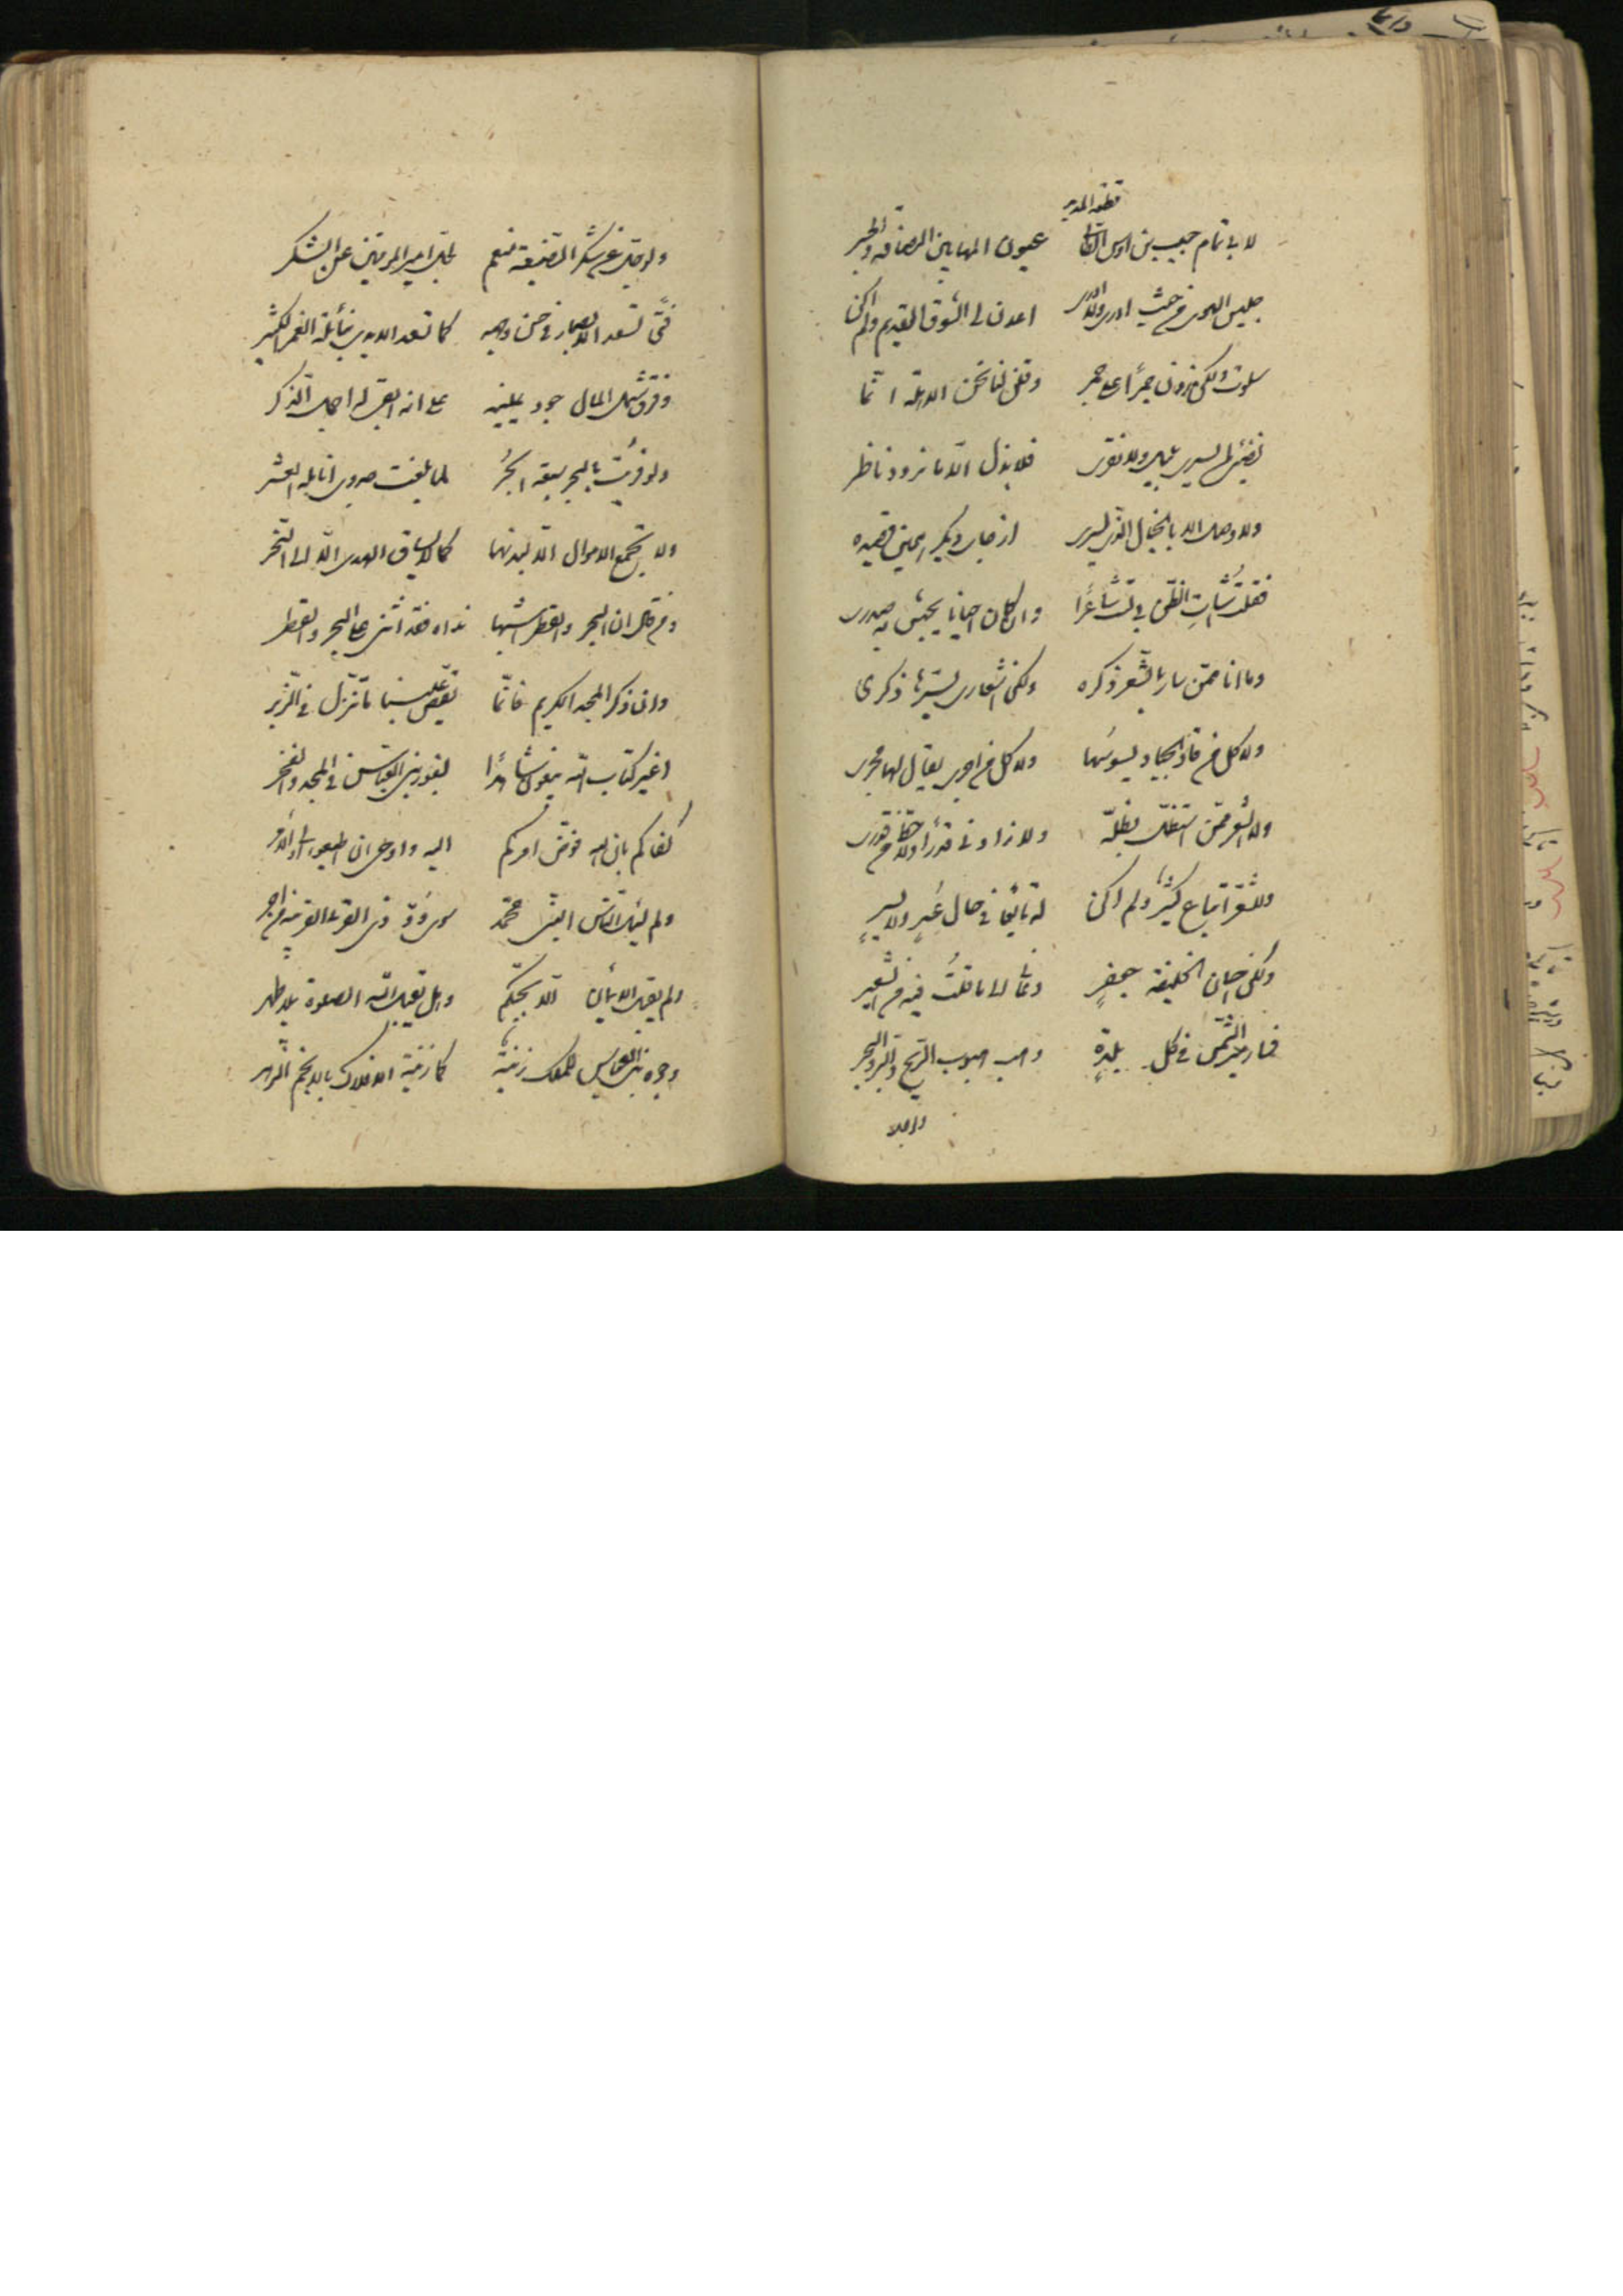 قطعه المدير
لابي تمام حبيب بن اوس الطائي عيون المها بين الرصافه والجسر
جلبن الهوى من حيث ادرى ولا ادرى اعدن لي الشوق القديم ولم اكن
سلوت ولكن زدن جمرًا على جمر وقلن لنا نحن الاهلة انما
تضئ لمن يسرى بليل ولا نقرى فلا بذل الا ما تزود ناظر
ولا وصل الا بالخيال الذى يسرى
فقلت اسات الظن بي لست شاعرًا وان كان احيانا يجيش به صدرى
وما انا ممن سار بالشعر ذكره ولكن اشعارى يسيرها ذكرى
ولا كل من قاد الجياد يسوسها ولا كل من اجرى يقال لها مجرى
ولا الشعر مما استظل بظله ولا زادنى قدرًا ولا حط من قدرى
وللشعر اتباع كثير ولم اكن له تابعًا في حال عسرٍ ولا يسرٍ
ولكن احسان الخليفة جعفرٍ دعانى الى ما قلتُ فيه من الشعر
فسار مسير الشمس في كل بلدةٍ وهب هبوب الريح في البر والبحر
ولوجل
ولو جل عن شكر الصنيعة منعم لجل امير المؤمنين عن الشكر
فتًى تسعد الابصار في حسن وجهه كما تسعد الايدى بنائله الغمر
وفرق شمل المال جود يمينه على انه ابقى له اجمل الذكر
ولو قرنت بالبحر سبعة ابحُر لما بلغت جدوى انامله العشر
ولا يجمع الاموال الا لبذلها كما لا يساق الهدى الا الى النحر
ومن قال ان البحر والقطر اشبها نداه فقد اثنى على البحر والقطر
وان ذكر المجد الكريم فانما يقص علينا ما تنزل في الزبر
اغير كتاب الله يبغون شاهدًا لقد فزتم بنى العباس في المجد والفخر
كفاكم بان الله فوض امركم اليه واوحى ان اطيعوا اولى الامر
ولم يسال الناس النبى محمد سوى ود ذى القربى القريبة من اجر
ولم يقبل الايمان الا بحبكم وهل يقبل الله الصلوة بلا طهر
وجوه بنى العباس للملك زينة كما زينة الافلاك بالانجم الزهر